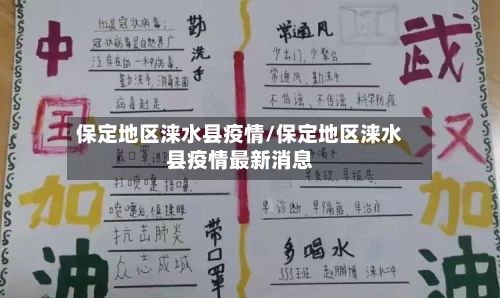 中国加油
勤洗手
他是冠状病毒；
冠状病毒是自然界广
泛存在的一种病毒。
勤洗手，消毒杀菌
病毒赶走
保定地区涞水县疫情/保定地区涞水
县疫情最新消息
打喷嚏 捂口鼻
喷嚏后，慎揉眼
抗击肺炎
众志成城
带口罩
常通风
少出门，少聚会
常通风，勤洗手
不恐慌，不传谣，科学防疫
早发现，早报告，
早诊断，早隔离，早治疗
多喝水
333班 涞水二中
武汉加油